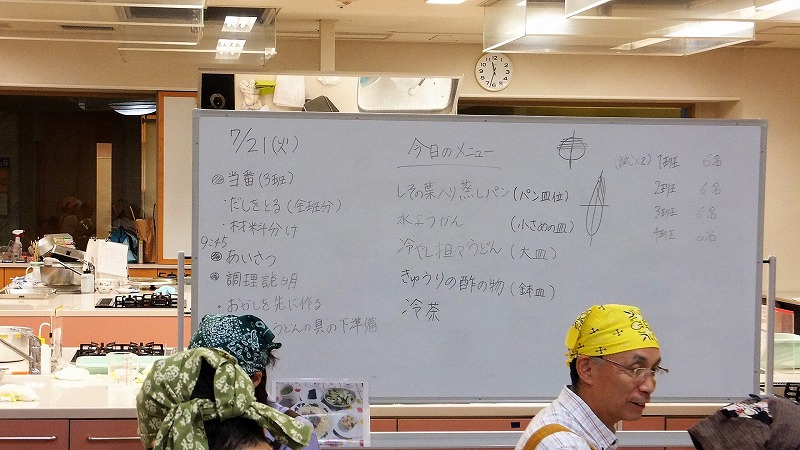 7/21(火)
当番(3班)
・だしをとる(全班分)
・材料分け
9:45
あいさつ
調理説明
・おかしを先に作る
うどんの具の下準備
今日のメニュー
しその葉入り蒸しパン(パン皿位)
水ようかん (小さめの皿)
冷やし担々うどん(大皿)
きゅうりの酢の物(鉢皿)
冷茶
1班 6名
2班 6名
3班 6名
4班 6名